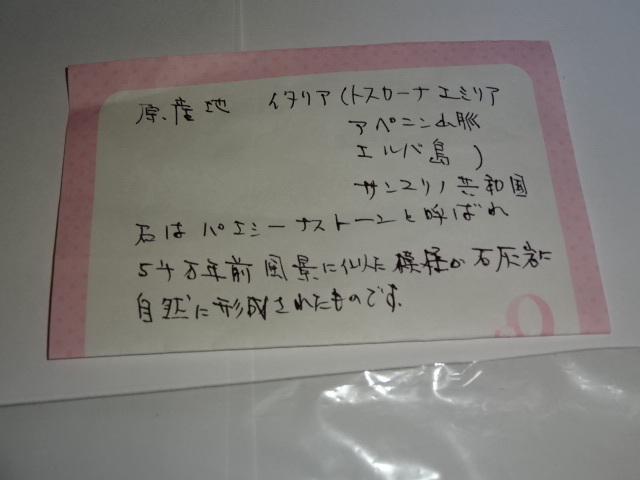 原産地 イタリア(トスカーナ エミリア
アペニン山脈
エルバ島)
サンマリノ共和国
石はパエシーナストーンと呼ばれ
5千万年前 風景に似た模様が石灰岩に
自然に形成されたものです.